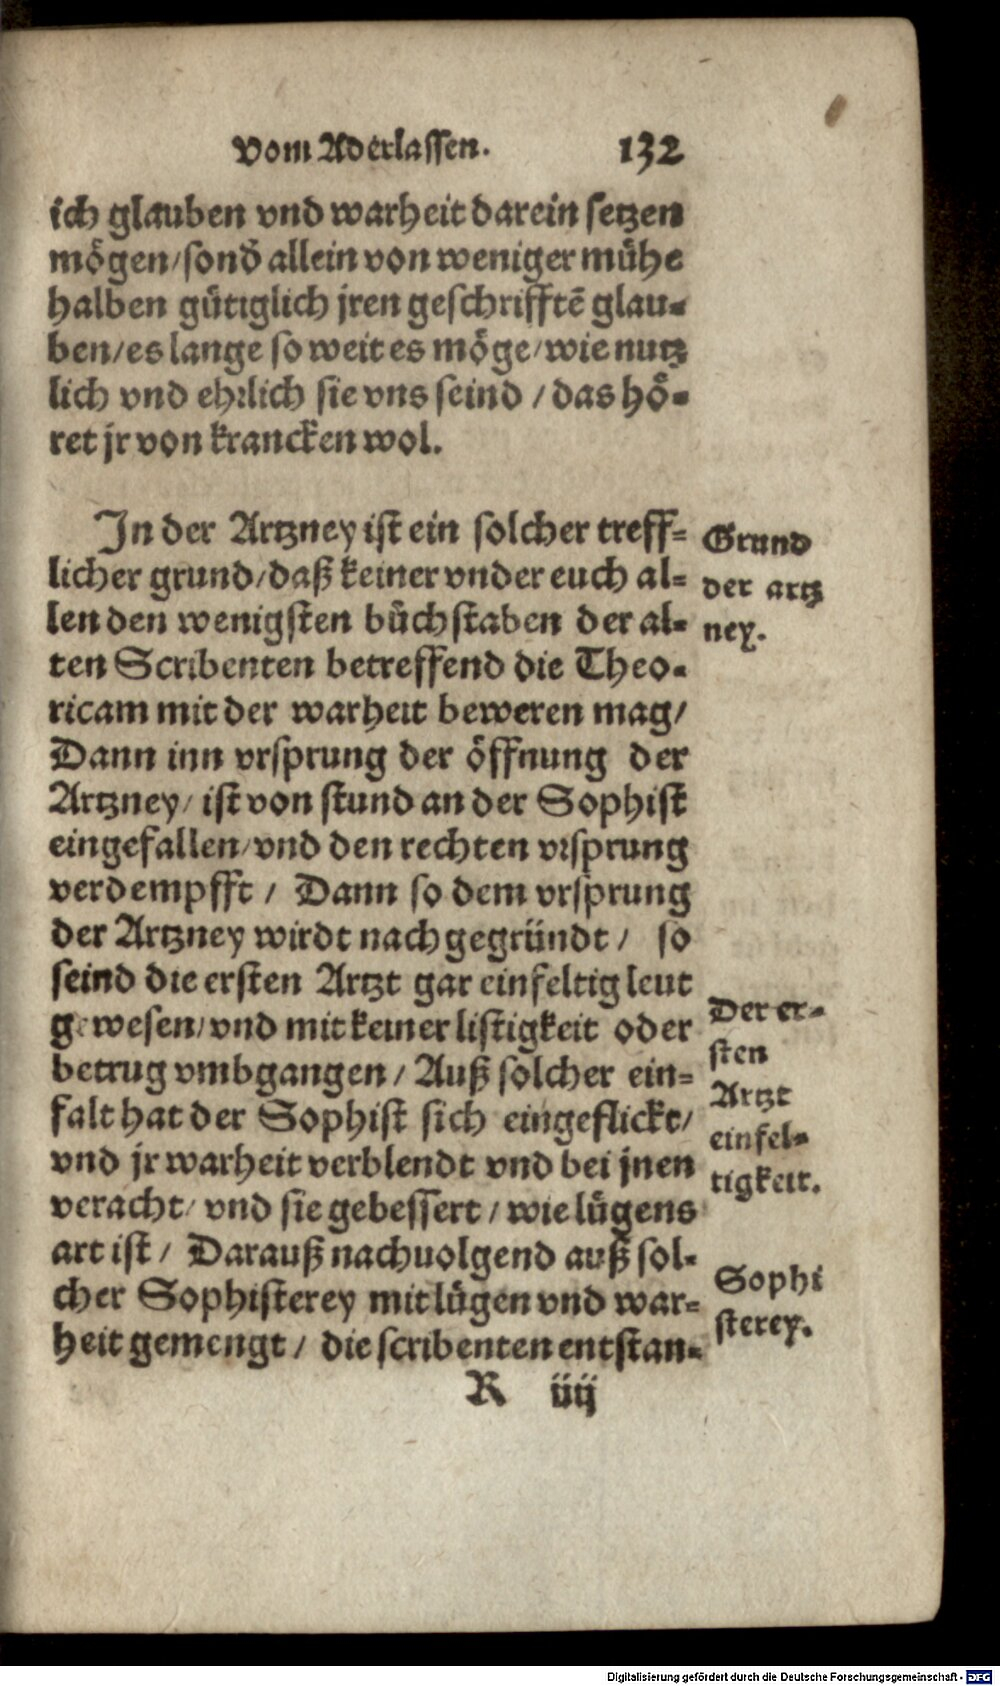 Vom Aderlassen. 132
ich glauben vnd warheit darein setzen
mögen/sond̃ allein von weniger mühe
halben gütiglich jren geschrifftẽ glau-
ben/es lange so weit es möge/wie nutz
lich vnd ehrlich sie vns seind/das hö-
ret jr von krancken wol.
In der Artzney ist ein solcher treff-
licher grund/daß keiner vnder euch al-
len den wenigsten bůchstaben der al-
ten Scribenten betreffend die Theo-
ricam mit der warheit beweren mag/
Dann inn vrsprung der öffnung der
Artzney/ist von stund an der Sophist
eingefallen/vnd den rechten vrsprung
verdempfft/Dann so dem vrsprung
der Artzney wirdt nachgegründt/so
seind die ersten Artzt gar einfeltig leut
gewesen/vnd mit keiner listigkeit oder
betrug vmbgangen/Auß solcher ein-
falt hat der Sophist sich eingeflickt/
vnd jr warheit verblendt vnd bei jnen
veracht/vnd sie gebessert/wie lügens
art ist/Darauß nachuolgend auß sol-
cher Sophisterey mit lügen vnd war-
heit gemengt/die scribenten entstan-
R iiij
Grund
der artz
ney.
Der er-
sten
Artzt
einfel-
tigkeit.
Sophi
sterey.
Digitalisierung gefördert durch die Deutsche Forschungsgemeinschaft - DFG